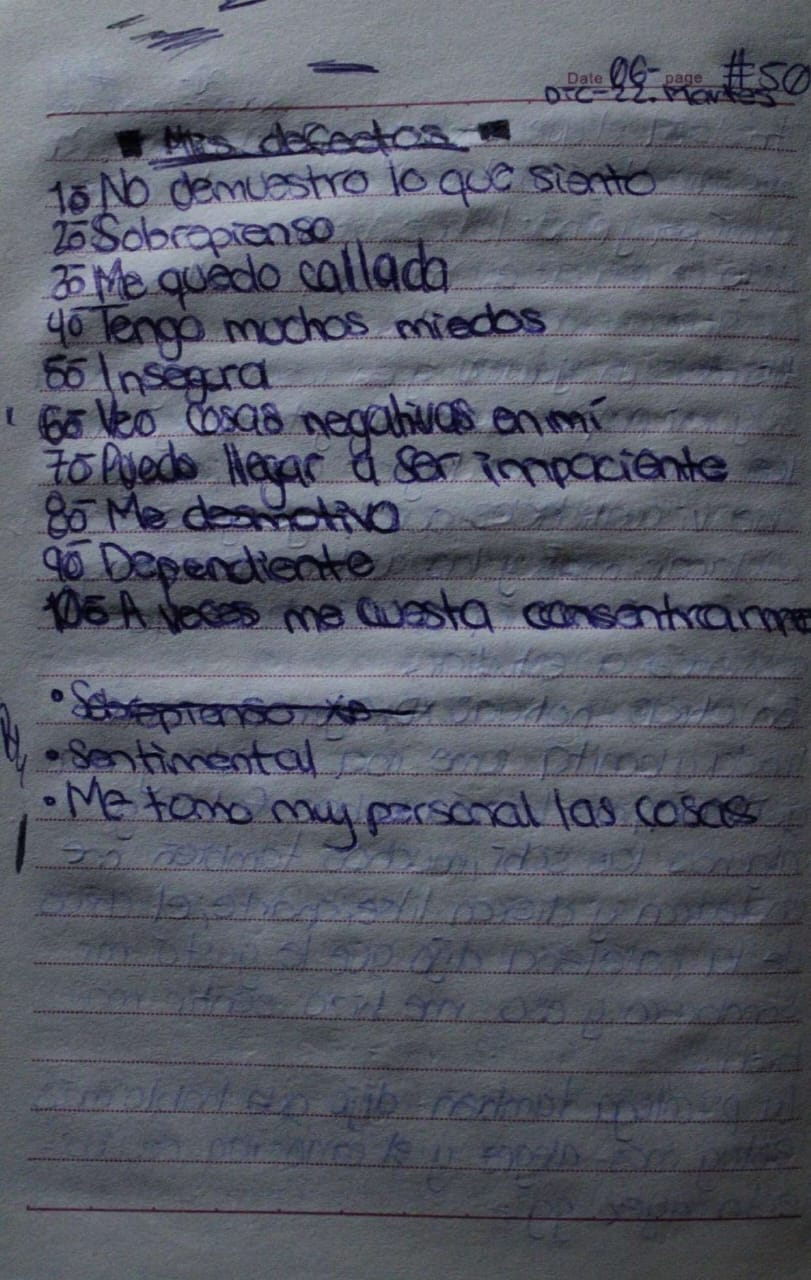 Date 06- page #50
DIC-22. Martes
Mis defectos
1o No demuestro lo que siento
2o Sobrepienso
3o Me quedo callada
4o Tengo muchos miedos
5o Insegura
6o Veo cosas negativas en mí
7o Puedo llegar a ser impaciente
8o Me desmotivo
9o Dependiente
10o A veces me cuesta consentrarme
• Sobrepienso xd
• Sentimental
• Me tomo muy personal las cosas